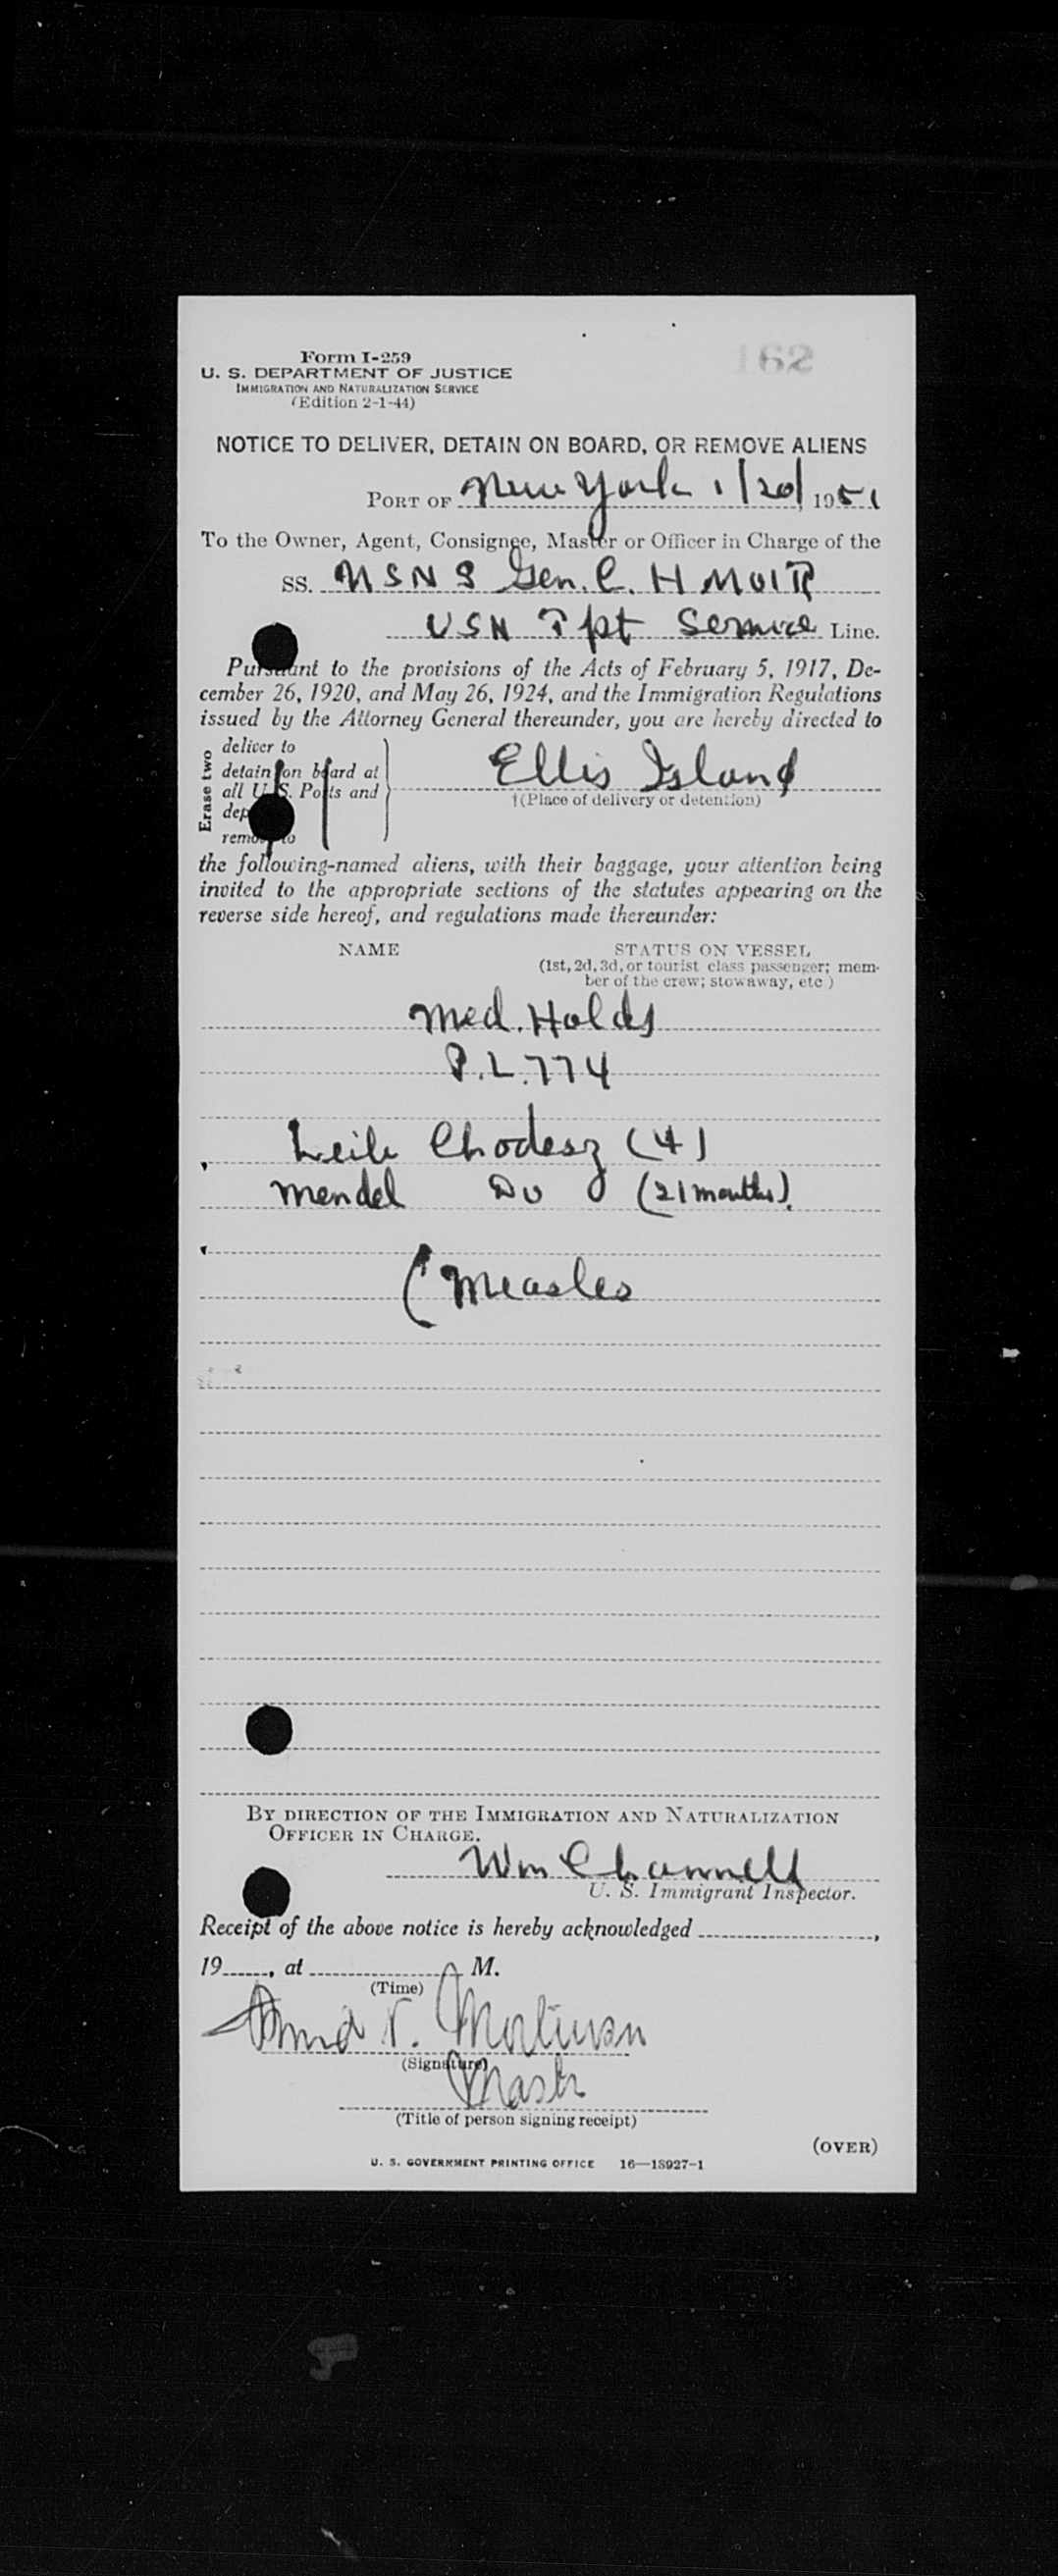 162
Form I-259
U. S. DEPARTMENT OF JUSTICE
IMMIGRATION AND NATURALIZATION SERVICE
(Edition 2-1-44)
NOTICE TO DELIVER, DETAIN ON BOARD, OR REMOVE ALIENS
PORT OF New York 1/20/ 1951
To the Owner, Agent, Consignee, Master or Officer in Charge of the
SS. USNS Gen. C. H MUIR
USN Tpt Service Line.
Pursuant to the provisions of the Acts of February 5, 1917, De-
cember 26, 1920, and May 26, 1924, and the Immigration Regulations
issued by the Attorney General thereunder, you are hereby directed to
Erase two
deliver to
detain on board at
all U. S. Ports and
dep
remove to
Ellis Island
†(Place of delivery or detention)
the following-named aliens, with their baggage, your attention being
invited to the appropriate sections of the statutes appearing on the
reverse side hereof, and regulations made thereunder:
NAME STATUS ON VESSEL
(1st, 2d, 3d, or tourist class passenger; mem-
ber of the crew; stowaway, etc.)
Med. Holds
P.L. 774
Leib Chodesz (4)
Mendel Do (21 months).
( Measles
BY DIRECTION OF THE IMMIGRATION AND NATURALIZATION
OFFICER IN CHARGE.
Wm Channell
U. S. Immigrant Inspector.
Receipt of the above notice is hereby acknowledged ,
19 , at M.
(Time)
(Signature)
Master
(Title of person signing receipt)
(OVER)
U. S. GOVERNMENT PRINTING OFFICE 16—18927-1